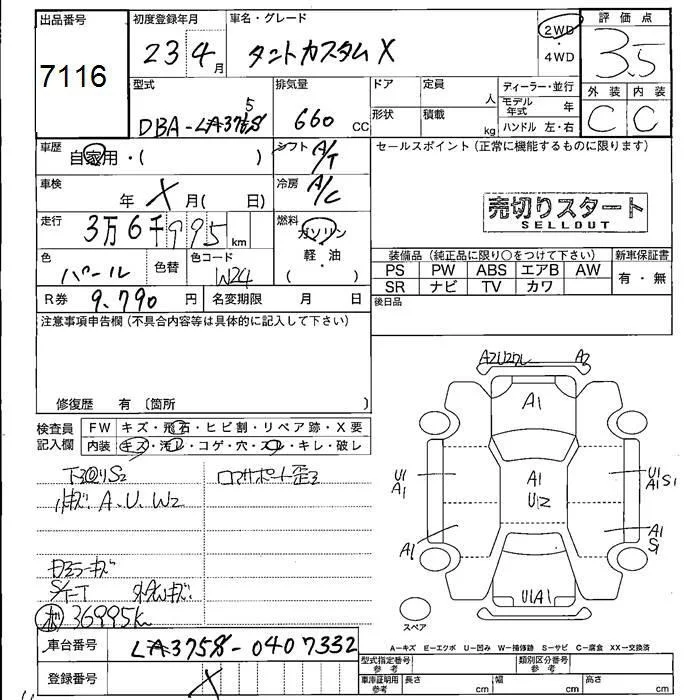 出品番号
7116
初度登録年月
23 4月
車名・グレード
タントカスタムX
2WD
・
4WD
評価点
3.5
外装 内装
C C
型式
DBA-LA375S
排気量
660 CC
ドア 定員
人
形状 積載
kg
ディーラー・並行
モデル年式 年
ハンドル 左・右
車歴
自家用・( )
シフト A/T
セールスポイント(正常に機能するものに限ります)
車検
年 X 月( 日)
冷房 A/C
売切りスタート
SELLOUT
走行
3万6千995 km
燃料
ガソリン
・
軽油
( )
色
パール
色替
色コード
W24
装備品(純正品に限り〇をつけて下さい)
新車保証書
PS PW ABS エアB AW
SR ナビ TV カワ
有・無
R券 9,790 円
名変期限 月 日
後日品
注意事項申告欄(不具合内容等は具体的に記入して下さい)
修復歴 有 〔箇所 〕
検査員記入欄
FW キズ・飛石・ヒビ割・リペア跡・X要
内装 キズ・汚レ・コゲ・穴・スレ・キレ・破レ
下廻りS2
ロアサポート歪ミ
小キズ A、U、W2
S/T-T
36995km
A2U2
A2
A1
U1
A1
A1
U2
U1
A1S1
A1
A1
S1
U1A1
スペア
A-キズ E-エクボ U-凹み W-補修跡 S-サビ C-腐食 XX-交換済
車台番号
LA375S-0407332
登録番号
X
型式指定番号 参考
類別区分番号 参考
車庫証明用 参考
長さ cm
幅 cm
高さ cm